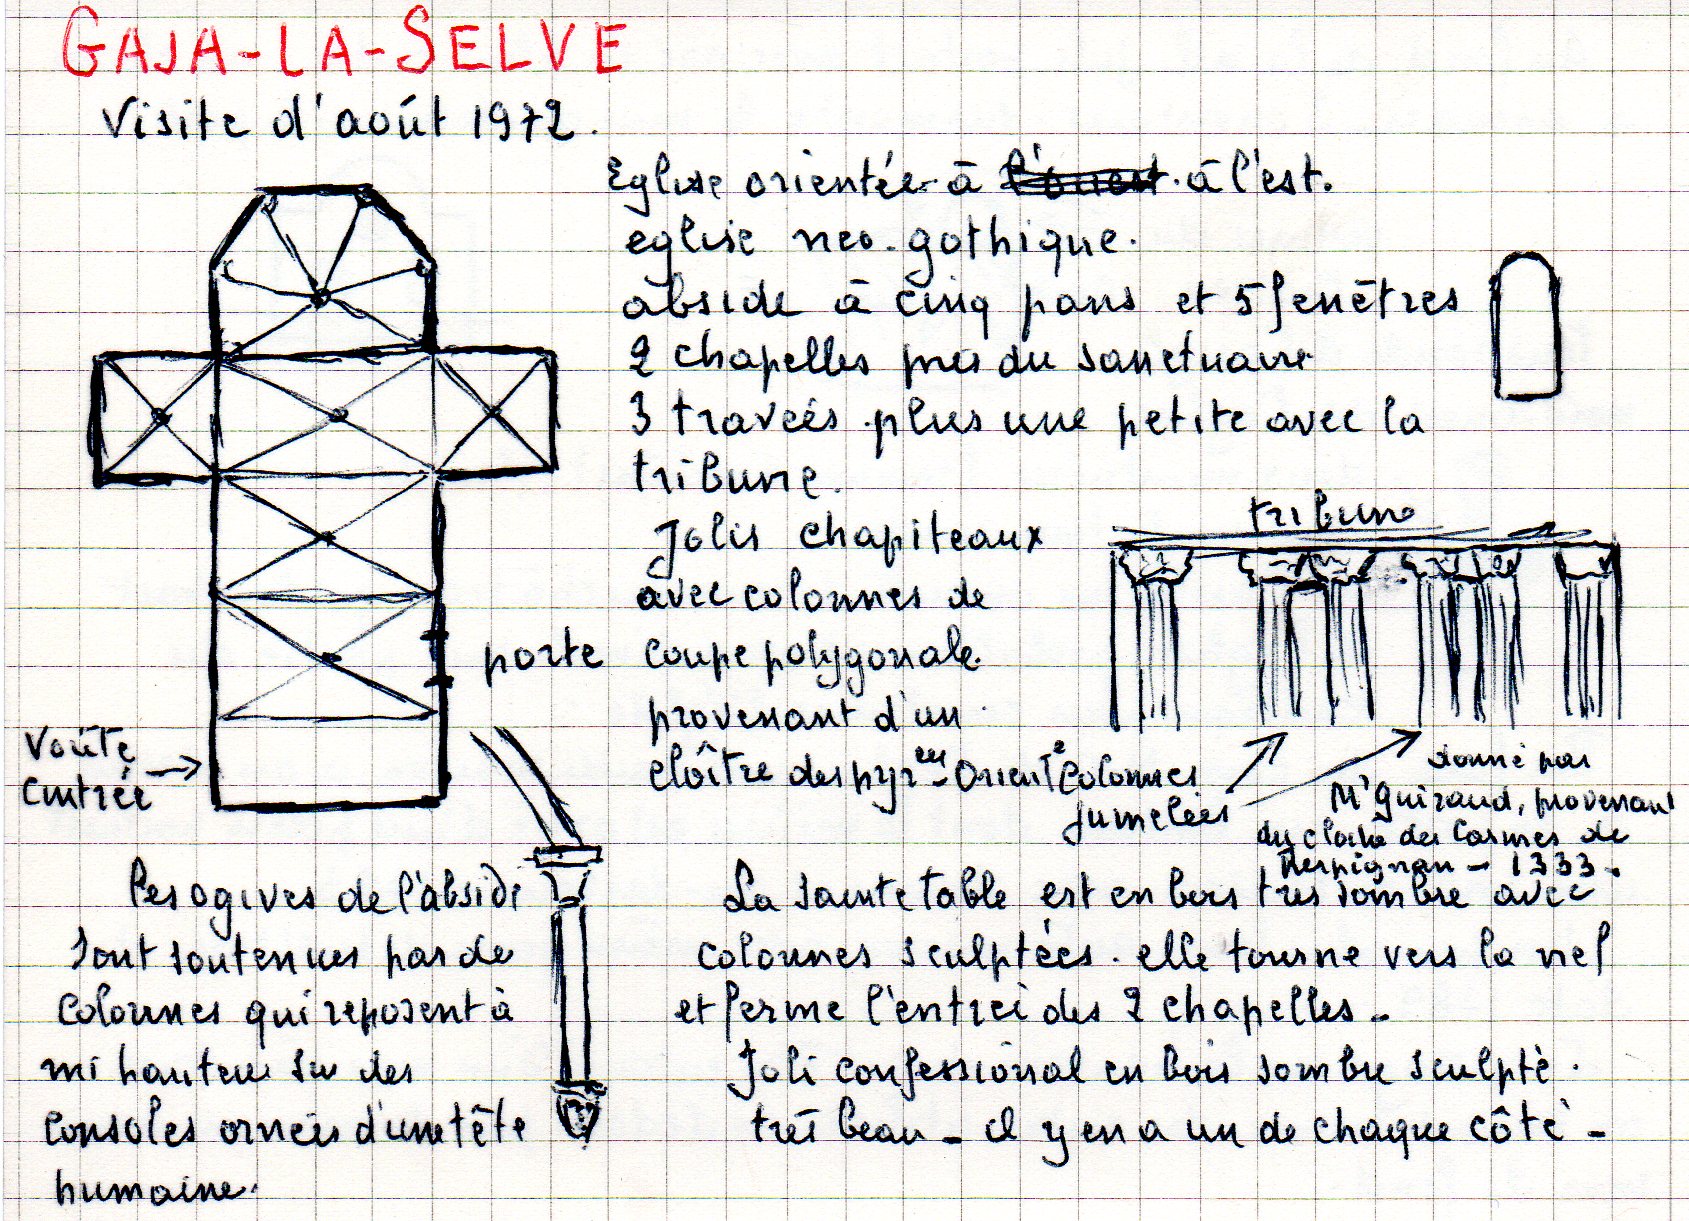 GAJA-LA-SELVE
Visite d'août 1972.
Eglise orientée à l'ouest à l'est.
eglise neo-gothique.
abside à cinq pans et 5 fenêtres
2 chapelles près du sanctuaire
3 travées plus une petite avec la
tribune.
Jolis chapiteaux
avec colonnes de
coupe polygonale
provenant d'un
cloître des pyr ees - Orient e
tribune
porte
Voûte
Cintrée
Colonnes
jumelées
donné par
Mr Guiraud, provenant
du cloitre des Carmes de
Perpignan - 1333.
Les ogives de l'abside
sont soutenues par de
colonnes qui reposent à
mi hauteur sur des
consoles ornées d'une tête
humaine.
La sainte table est en bois très sombre avec
colonnes sculptées. elle tourne vers la nef
et ferme l'entrée des 2 chapelles -
Joli confessional en bois sombre sculpté.
très beau - il y en a un de chaque côté -